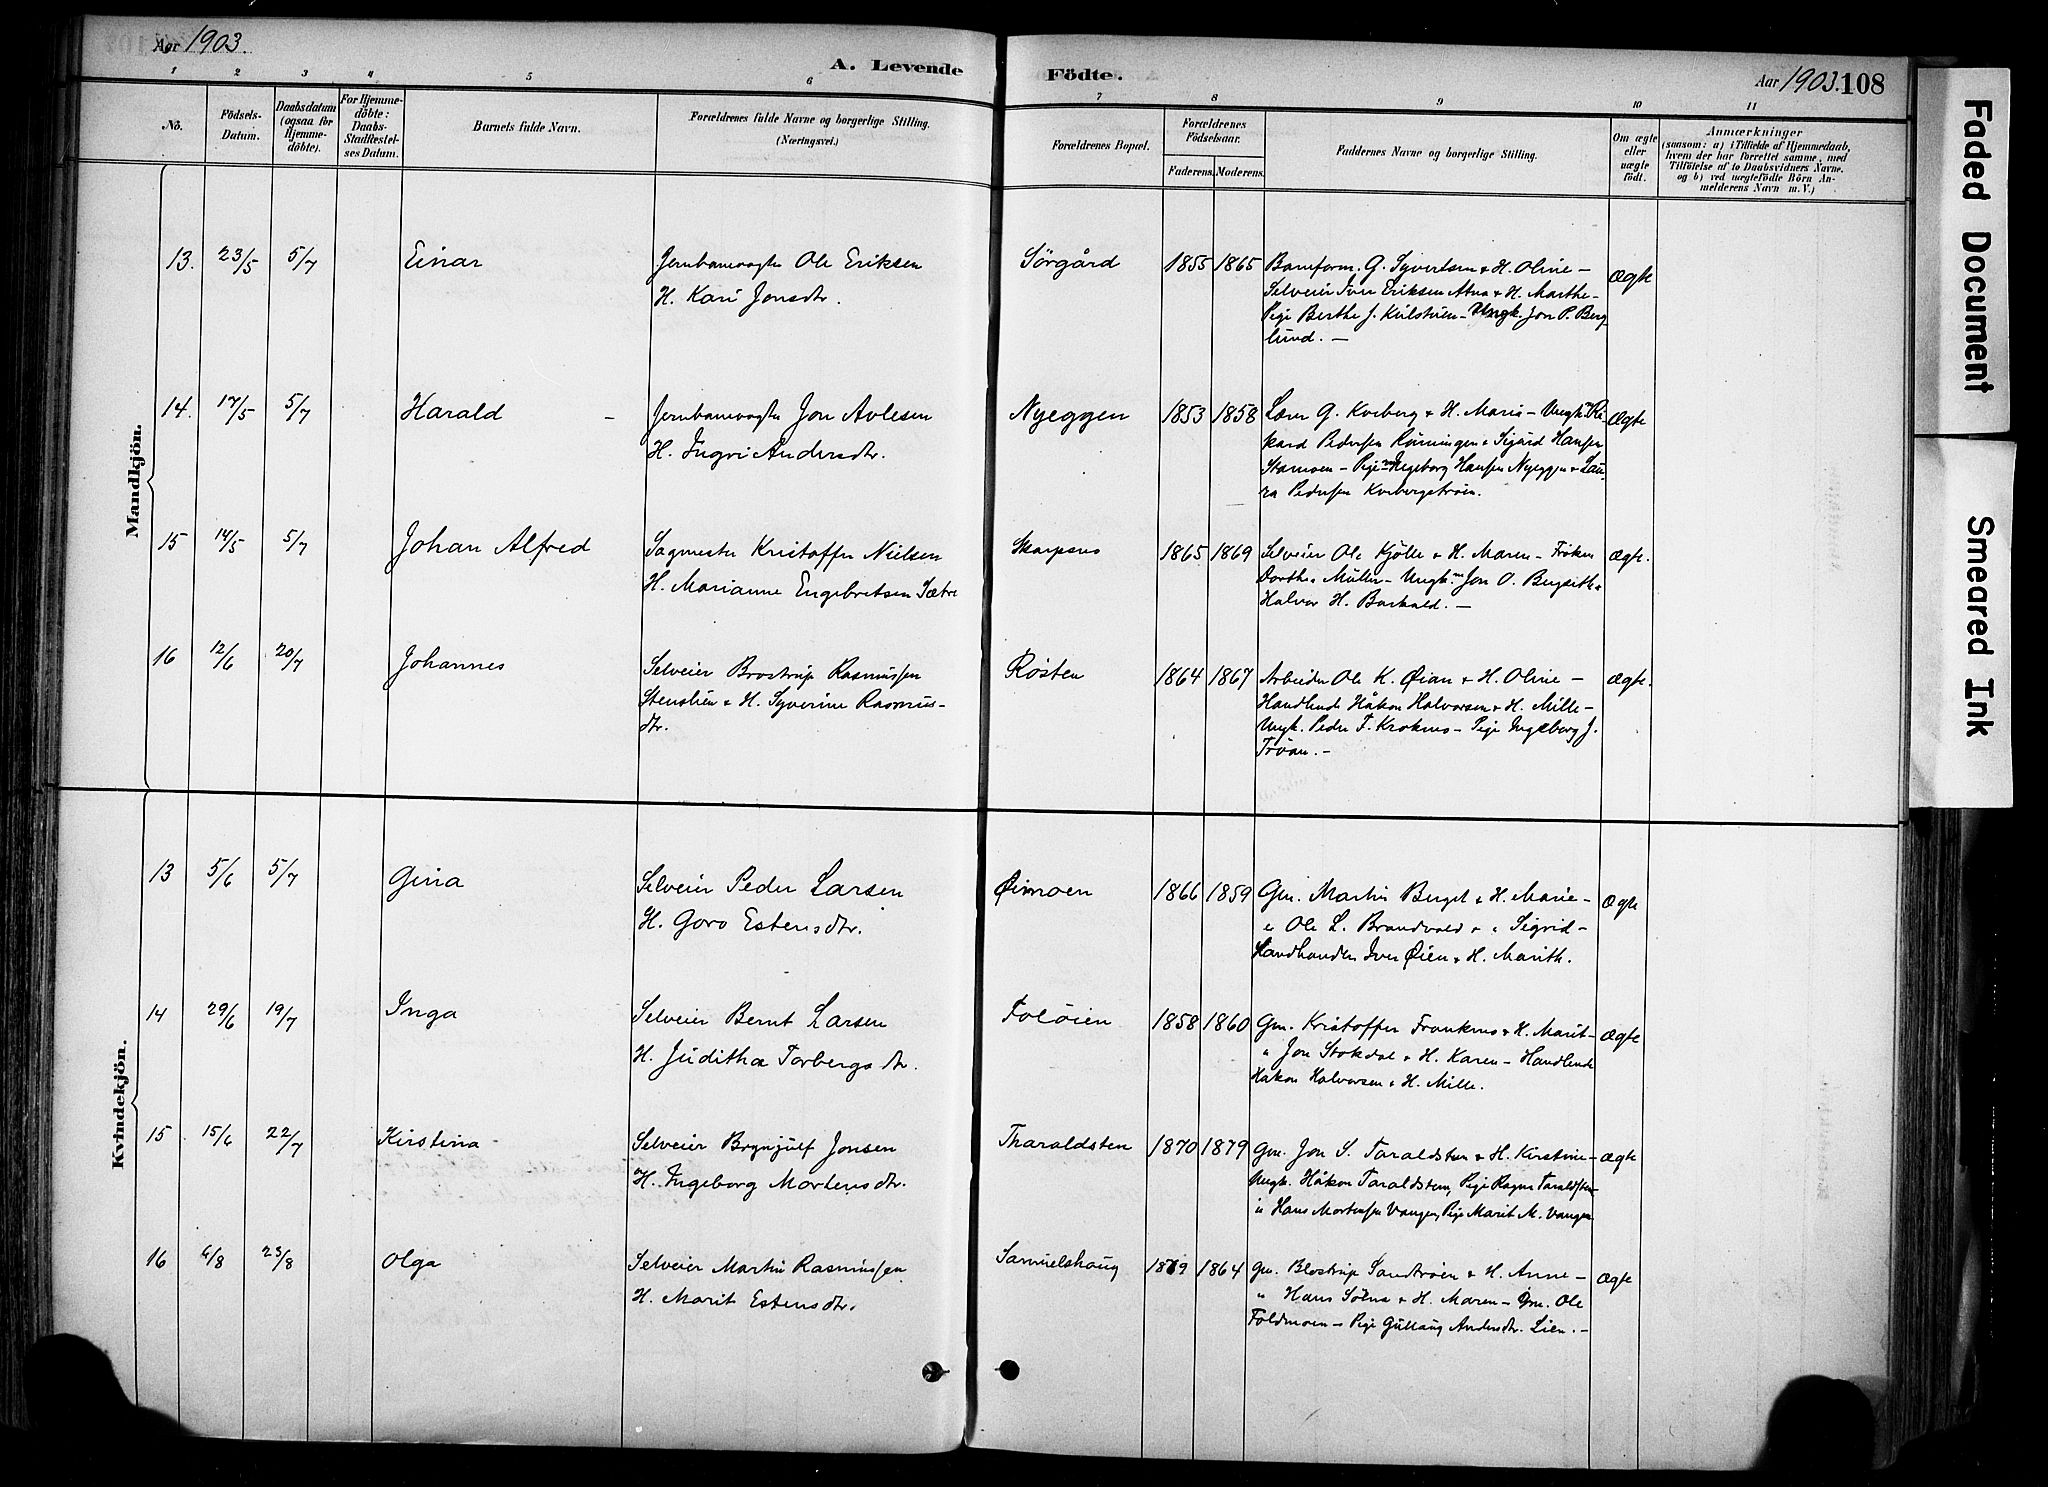 Aar 1903.
A. Levende Födte.
Aar 1903. 108
1 2 3 4 5 6 7 8 9 10 11
No.
Födsels-Datum.
Daabsdatum (ogsaa for Hjemme-döbte).
For Hjemme-döbte: Daabs-Stadfæstel-ses Datum.
Barnets fulde Navn.
Forældrenes fulde Navne og borgerlige Stilling.
(Næringsvei.)
Forældrenes Bopæl.
Forældrenes Födselsaar.
Faderens. Moderens.
Faddernes Navne og borgerlige Stilling.
Om ægte eller uægte födt.
Anmærkninger
(saasom: a) i Tilfælde af Hjemmedaab,
hvem der har forrettet samme, med
Tilföielse af to Daabsvidners Navne,
og b) ved uægtefödte Börn An-
melderens Navn m. V.)
Mandkjön.
13. 23/5 5/7 Einar Jernbanevogter Ole Eriksen Sörgård 1855 1865 Baneform. G. Syvertsen & H. Oline – ægte
H. Kari Jonsdtr. Selveier Iver Eriksen Atna & H. Marthe –
Pige Berthe J. – Ungk. Jon P. Berg
lund. –
14. 17/5 5/7 Harald – Jernbanevogter Jon Avlesen Nyeggen 1853 1858 Lærer G. Kveberg & H. Maria – Ungk. Ri ægte
H. Ingri Andersdtr. kard Pedersen Rönningen & Sigurd Hansen
– Pige Ingeborg Hansen Nyeggen & Lau
ra Pedersen Kvebergstrøen.
15 14/5 5/7 Johan Alfred Sagmester Kristoffer Nielsen 1865 1869 Selveier Ole Kjölle & H. Maren – Fröken ægte.
H. Marianne Engebretsen Sætre Dorthea Müller – Ungk. Jon O. &
Halvor H. Barkald. –
16 12/6 20/7 Johannes Selveier Brostrup Rasmussen Røsten 1864 1867 Arbeider Ole K. Øian & H. Oline – ægte.
Stenslien & H. Syverine Rasmus- Handlende Håkon Halvorsen & H. Mille –
dtr. Ungk. Peder F. Kroknes – Pige Ingeborg J.
Trøan. –
Kvindekjön.
13 5/6 5/7 Gina Selveier Peder Larsen Øimoen 1866 1859 Gm. Martin Berget & H. Marie – ægte
H. Goro Estensdtr. " Ole L. Brandvold & " Sigrid –
Landhandler Iver Øien & H. Marith.
14 29/6 19/7 Inga Selveier Bernt Larsen Foløien 1858 1860 Gm. Kristoffer & H. Marit – ægte
H. Juditha Torbergsdtr. " Jon Stokdal & H. Karen – Handlende
Håkon Halvorsen & H. Mille.
15 15/6 22/7 Kirstina Selveier Brynjulf Jonsen Tharaldsten 1870 1879 Gm. Jon S. Taraldsten & H. Kirstine – ægte
H. Ingeborg Mortensdtr. Ungk. Håkon Taraldsten, Pige Ragna Taraldsten
" Hans Mortensen Vangen, Pige Marit M. Vangen
16 6/8 23/8 Olga Selveier Martin Rasmussen Samuelshaug 1869 1864 Gm. Blostrup Sandtrøen & H. Anne – ægte
H. Marit Estensdtr. " Hans Sölna & H. Maren – Gm. Ole
Foldmoen – Pige Gullaug Andersdtr. Lien. –
Faded Document
Smeared Ink